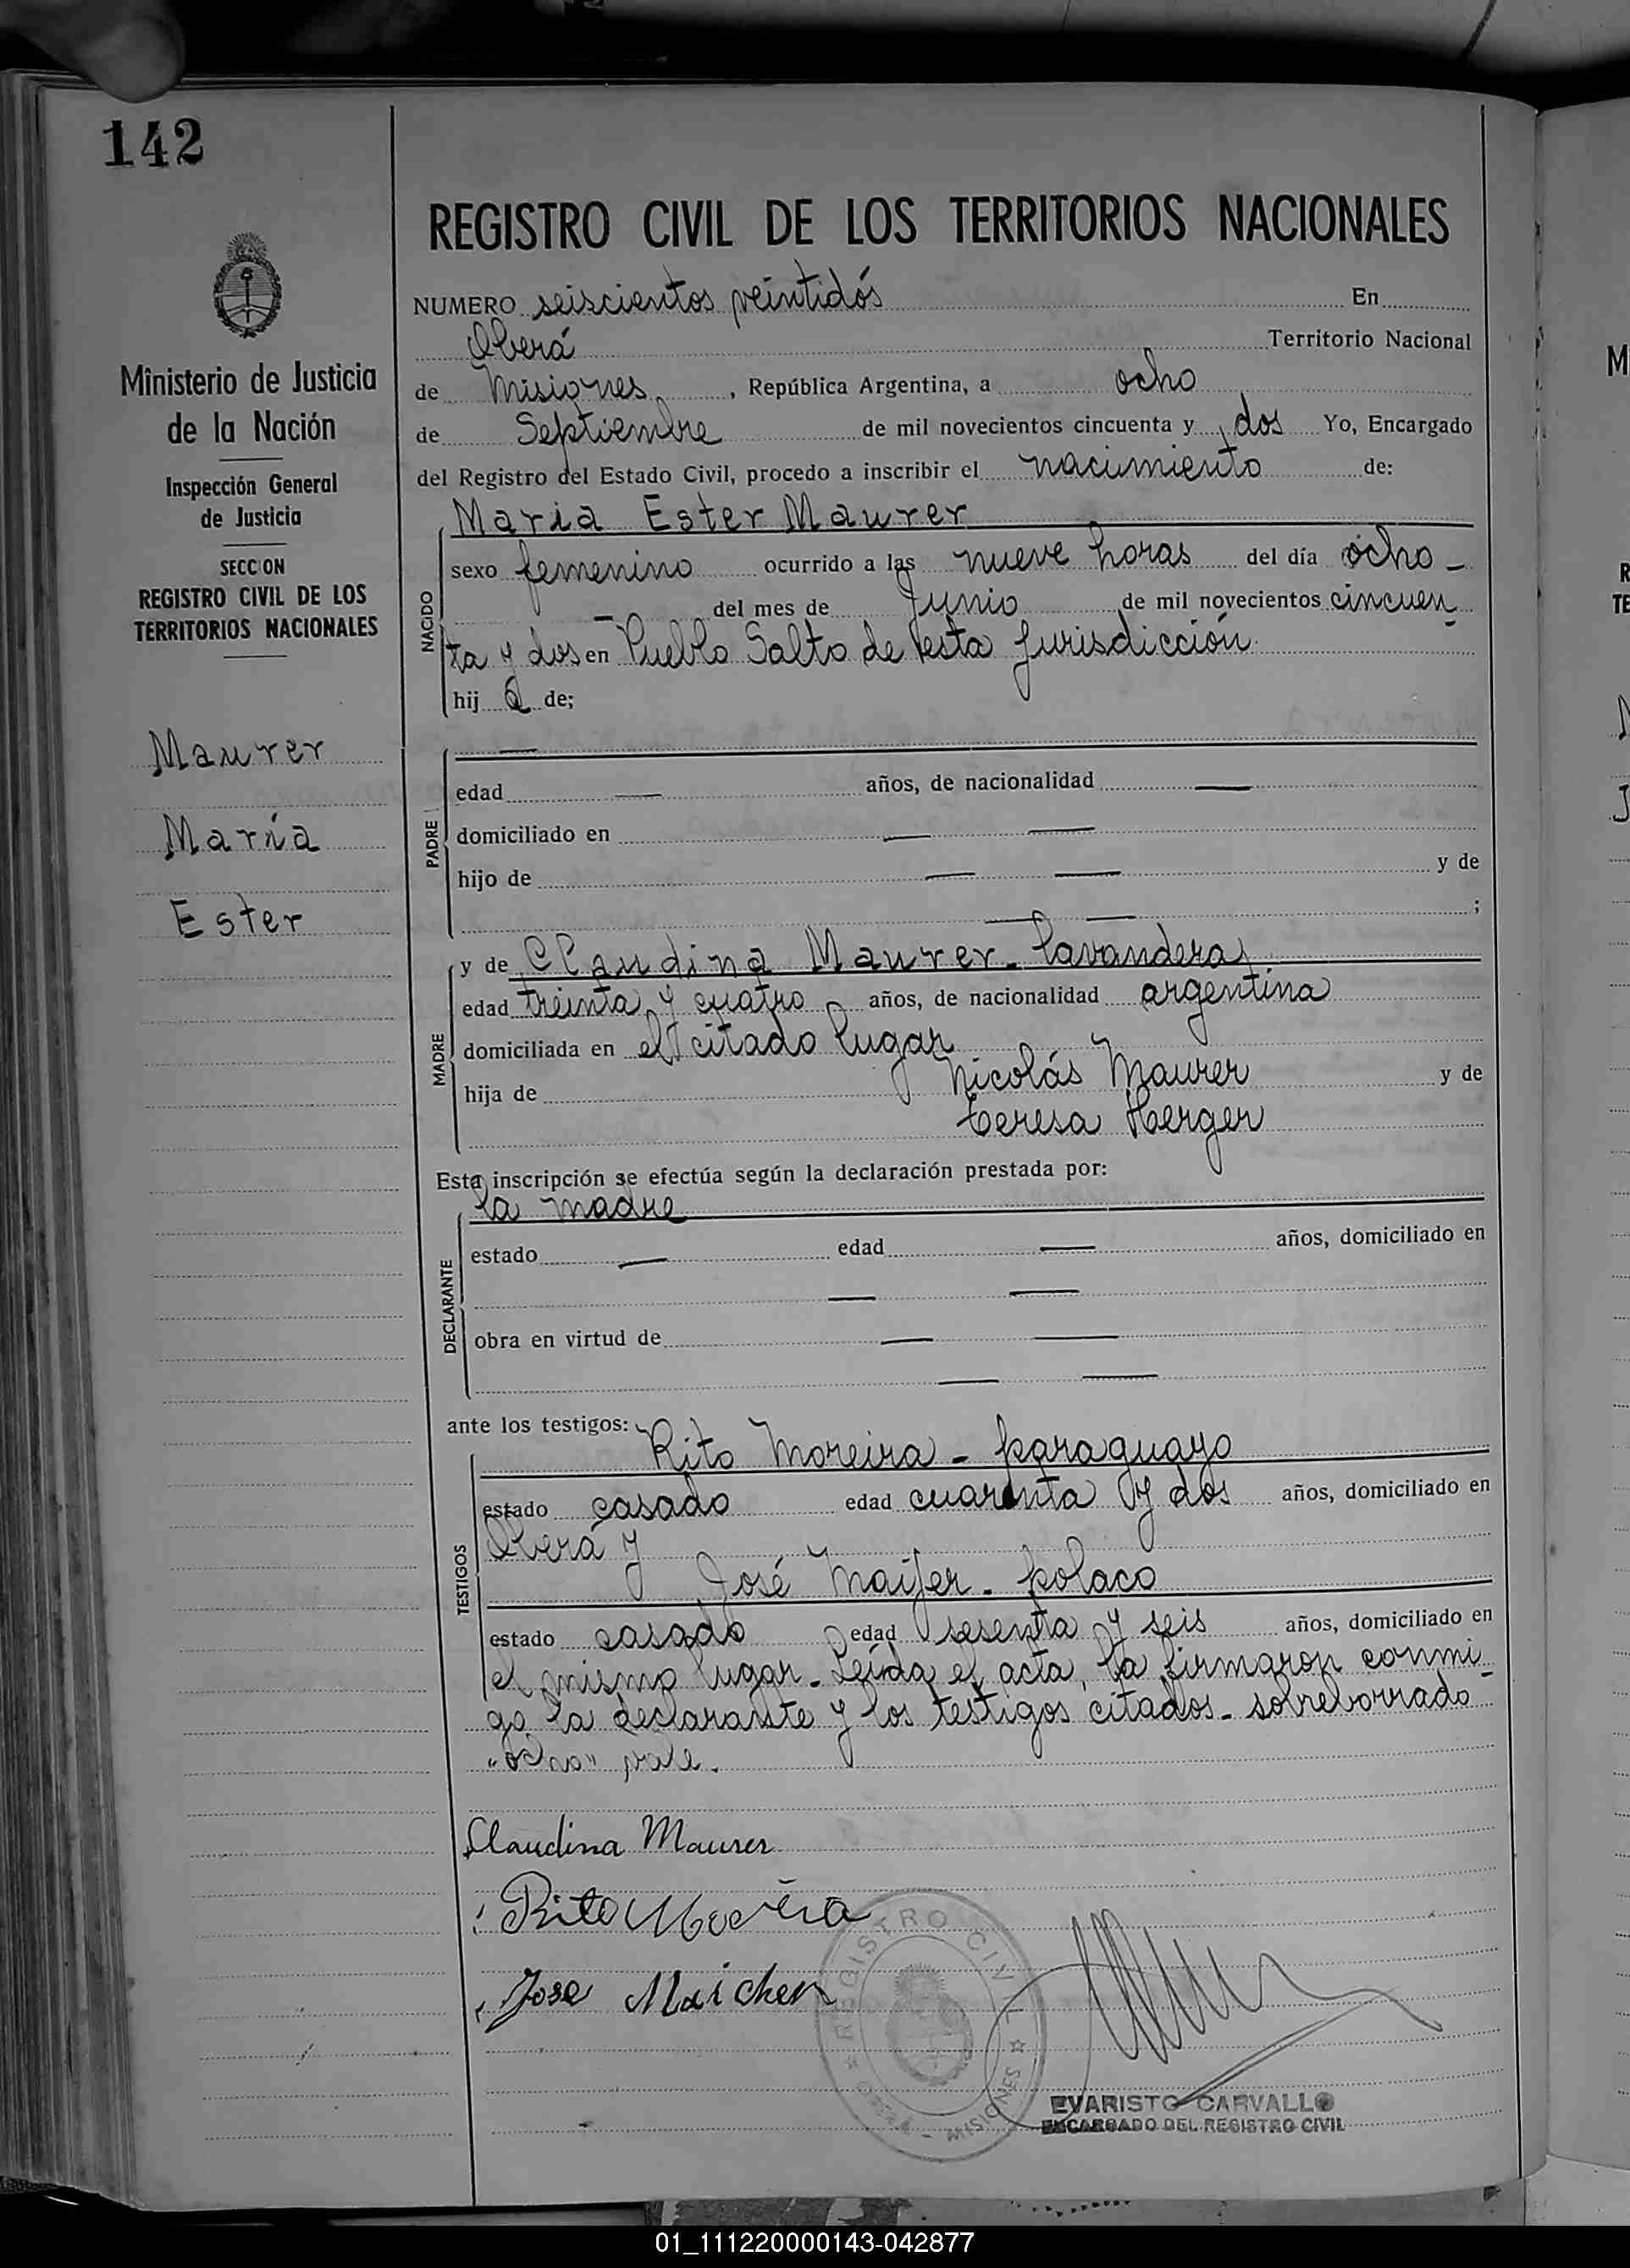 142
REGISTRO CIVIL DE LOS TERRITORIOS NACIONALES
Ministerio de Justicia
de la Nación
Inspección General
de Justicia
SECCION
REGISTRO CIVIL DE LOS
TERRITORIOS NACIONALES
Maurer
María
Ester
NUMERO seiscientos veintidós En
Oberá Territorio Nacional
de Misiones, República Argentina, a ocho
de Septiembre de mil novecientos cincuenta y dos Yo, Encargado
del Registro del Estado Civil, procedo a inscribir el nacimiento de:
Maria Ester Maurer
NACIDO
sexo femenino ocurrido a las nueve horas del día ocho -
- del mes de Junio de mil novecientos cincuen
ta y dos en Pueblo Salto de esta jurisdicción
hij a de;
PADRE
edad — años, de nacionalidad —
domiciliado en — —
hijo de — — y de
— — ;
MADRE
y de Claudina Maurer - lavandera
edad treinta y cuatro años, de nacionalidad argentina
domiciliada en el citado lugar
hija de Nicolás Maurer y de
Teresa Herger
Esta inscripción se efectúa según la declaración prestada por:
la madre
DECLARANTE
estado — edad — años, domiciliado en
— —
obra en virtud de — —
— —
ante los testigos:
TESTIGOS
Rito Moreira - paraguayo
estado casado edad cuarenta y dos años, domiciliado en
Oberá y
José Maijer - polaco
estado casado edad sesenta y seis años, domiciliado en
el mismo lugar - Leída el acta, la firmaron conmi
go la declarante y los testigos citados - sobreborrado
"ocho" vale.
Claudina Maurer
Rito Moreira
Jose Maicher
REGISTRO CIVIL
OBERA - MISIONES
EVARISTO CARVALLO
ENCARGADO DEL REGISTRO CIVIL
01_111220000143-042877